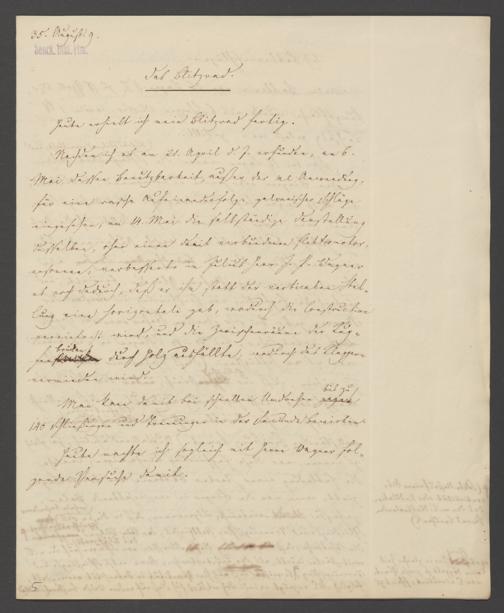 35. August 9.
Senck. Bibl. Ffm.
Das Blitzrad.
Heute erhielt ich mein Blitzrad fertig.
Nachdem ich es am 21. April d. J. erfunden, am 6.
Mai dessen Benutzbarkeit, außer der als Anwendung,
für eine rasche Aufeinanderfolge galvanischer Schläge
eingesehen, am 14. Mai die selbständige Darstellung
desselben, ohne einen damit verbundenen Elektromotor,
ersonnen, verbesserte im Julius Herr J. P. Wagner
es noch dadurch, daß er ihm statt der verticalen Stel-
lung eine horizontale gab, wodurch die Construction
vereinfacht wird, und die Zwischenräume der
durch Holz ausfüllte, wodurch das Klappern
vermieden wird.
Man kann damit bei schnellem Umdrehen bis zu
140 Schließungen und Trennungen in der Sekunde bewirken.
Heute machte ich sogleich mit Herrn Wagner fol-
gende Versuche damit.
5